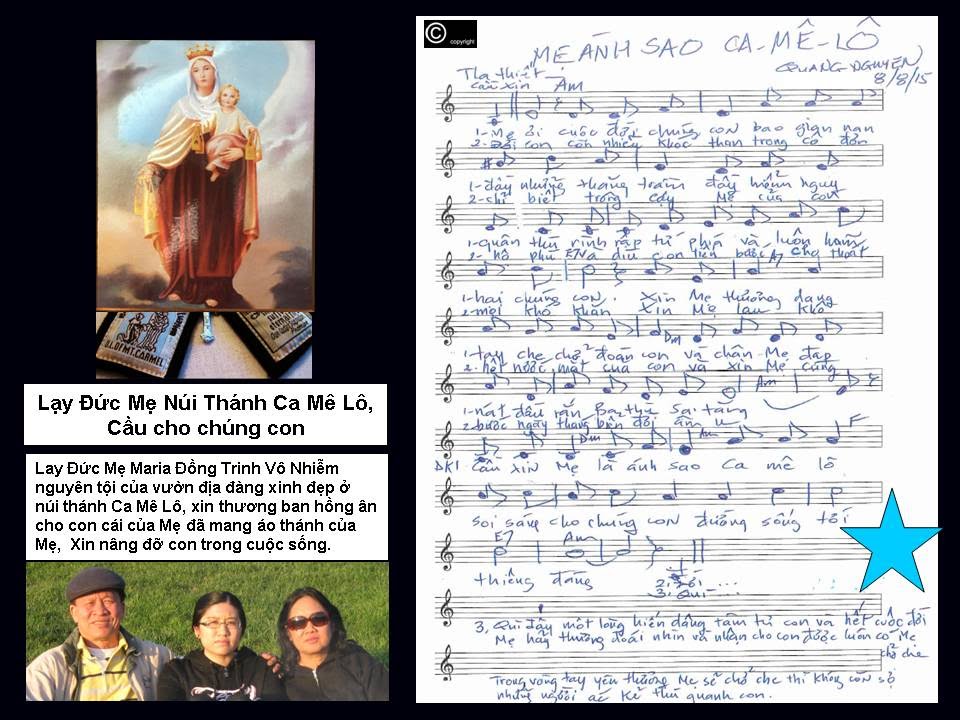 OUR LADY OF MT. CARMEL
Lạy Đức Mẹ Núi Thánh Ca Mê Lô,
Cầu cho chúng con
Lay Đức Mẹ Maria Đồng Trinh Vô Nhiễm
nguyên tội của vườn địa đàng xinh đẹp ở
núi thánh Ca Mê Lô, xin thương ban hồng ân
cho con cái của Mẹ đã mang áo thánh của
Mẹ, Xin nâng đỡ con trong cuộc sống.
© copyright
MẸ ÁNH SAO CA-MÊ-LÔ
QUANG-NGUYEN
8/8/15
Tha thiết
cầu xin Am
1-Mẹ ơi cuộc đời chúng con bao gian nan
2- Đời con còn nhiều khóc than trong cô đơn
1-đầy những thăng trầm đầy hiểm nguy
2-chỉ biết trông cậy Mẹ của con
1-quân thù rình rập tứ phía và luôn hãm
2- hộ phù và dìu con tiến bước cho thoát
E7 A7
1-hai chúng con. Xin Mẹ thương dang
2-mọi khó khăn Xin Mẹ lau khô
Dm
1-tay che chở đoàn con và chân Mẹ đạp
2-hết nước mắt của con và xin Mẹ cùng
Am
1-nát đầu rắn ba thù Sa tăng
2-bước ngày tháng bên đời âm u
Dm Am F
ĐK1 Cầu xin Mẹ là ánh sao Ca mê lô
soi sáng cho chúng con đường sống tới
E7 Am
thiêng đàng
2. Đời ...
3. Quì ...
3, Quì đây một lòng hiến dâng tâm tư con và hết cuộc đời
Mẹ hãy thương đoái nhìn và nhận cho con được luôn có Mẹ
chở che
Trong vòng tay yêu thương Mẹ sẽ chở che thì không còn sợ
những người ác kẻ thù quanh con.